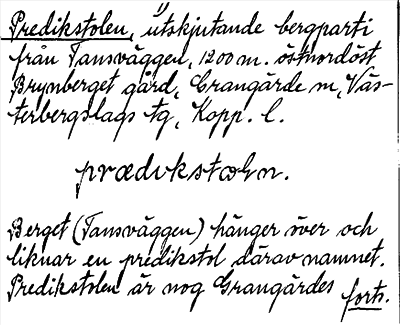 Predikstolen, 1) utskjutande bergparti
från Tansväggen, 1200 m. östnordöst
Brynberget gård, Grangärde sn, Väs-
terbergslags tg, Kopp. l.
Berget (Tansväggen) hänger över och
liknar en predikstol därav namnet.
Predikstolen är nog Grangärdes
forts.